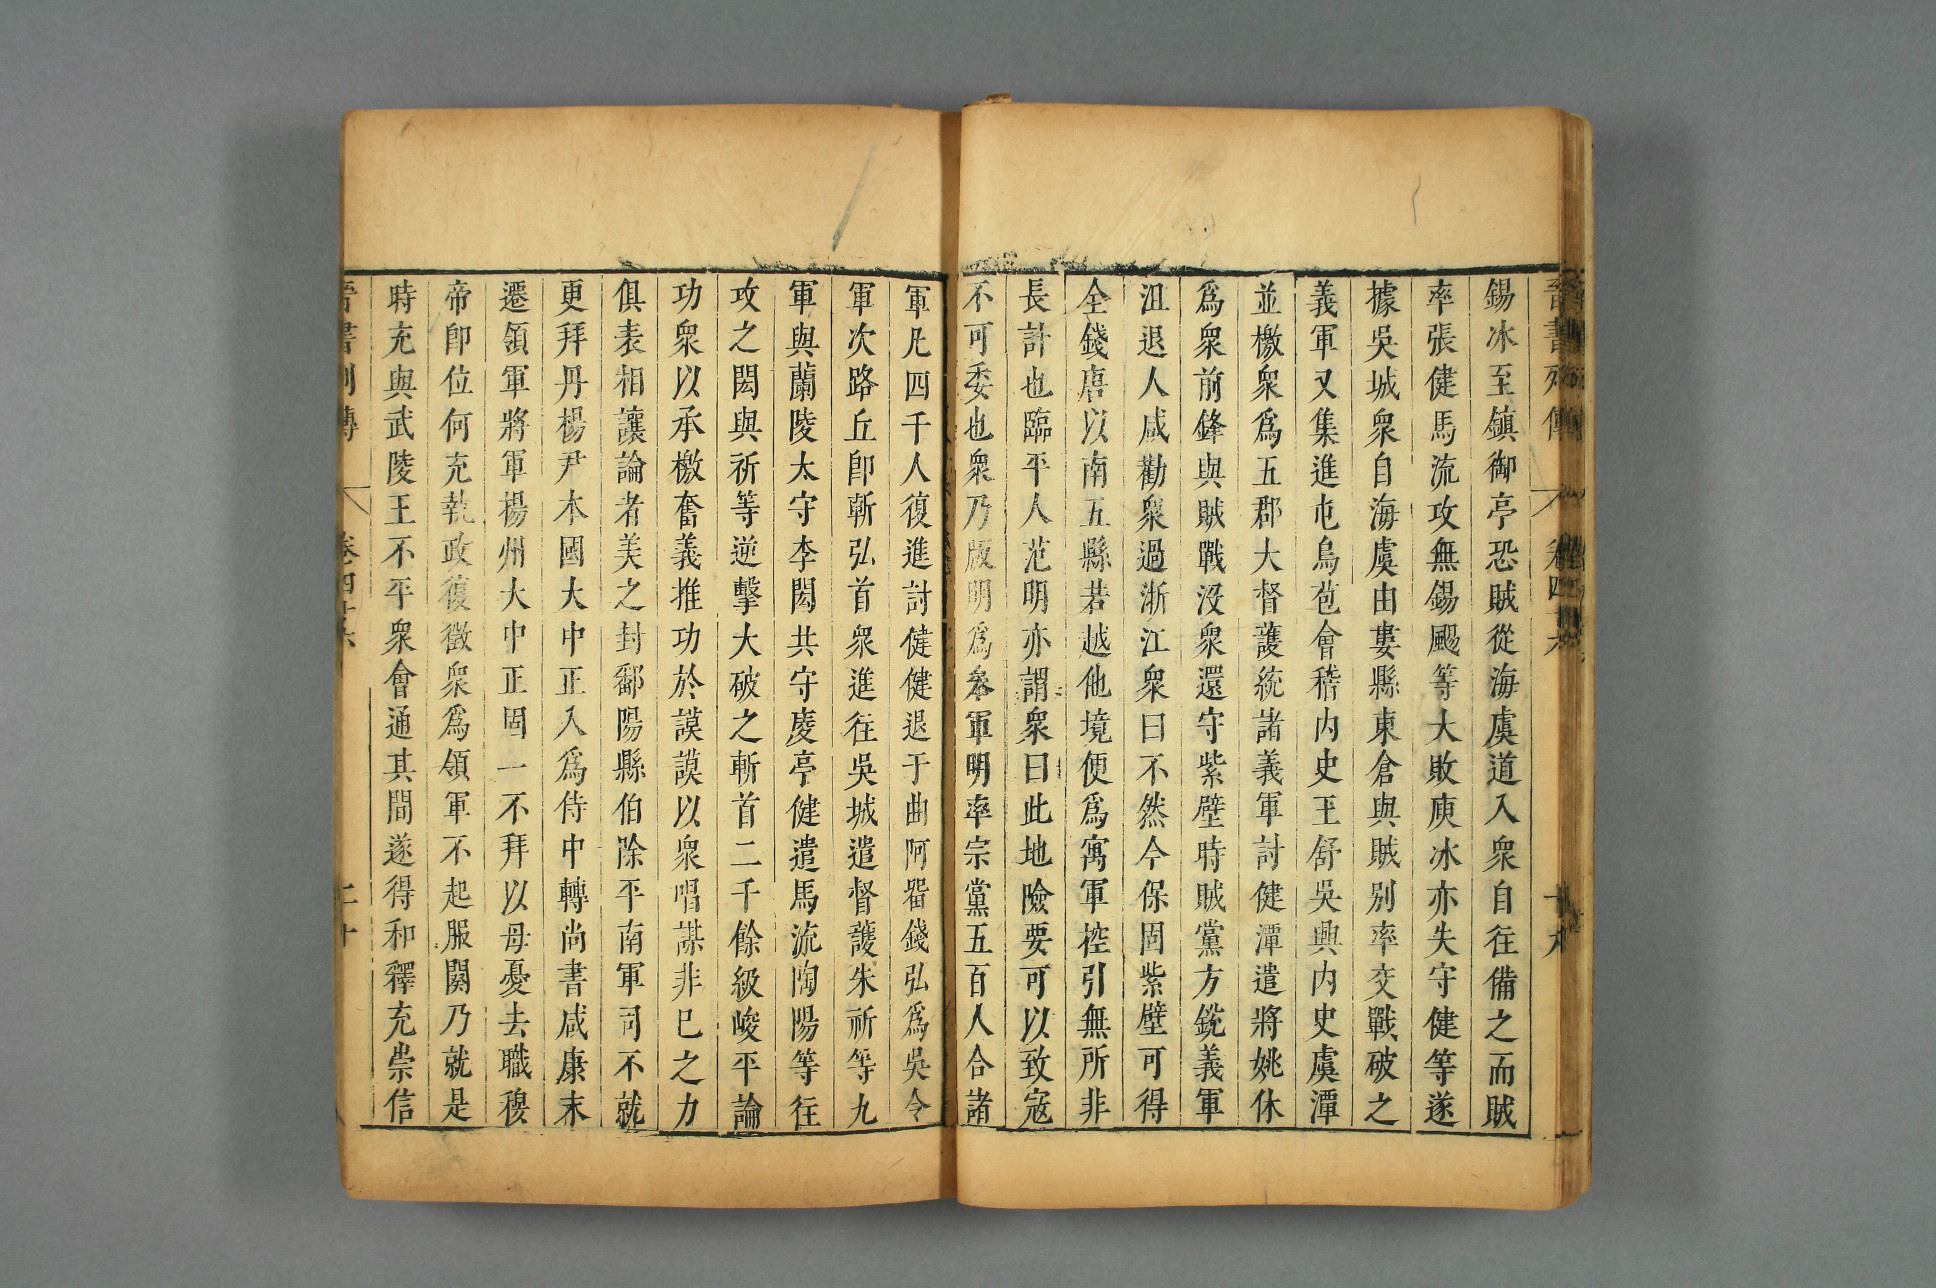 晉書列傳 卷四十六 十九
錫冰至鎮御亭恐賊從海虞道入衆自往備之而賊
率張健馬流攻無錫颺等大敗庾冰亦失守健等遂
據吳城衆自海虞由婁縣東倉與賊別率交戰破之
義軍又集進屯烏苞會稽內史王舒吳興內史虞潭
並檄衆爲五郡大督護統諸義軍討健潭遣將姚休
爲衆前鋒與賊戰沒衆還守紫壁時賊黨方銳義軍
沮退人咸勸衆過浙江衆曰不然今保固紫壁可得
全錢唐以南五縣若越他境便爲寓軍控引無所非
長計也臨平人范明亦謂衆曰此地險要可以致寇
不可委也衆乃版明爲參軍明率宗黨五百人合諸
軍凡四千人復進討健健退于曲阿留錢弘爲吳令
軍次路丘卽斬弘首衆進往吳城遣督護朱祈等九
軍與蘭陵太守李閎共守慶亭健遣馬流陶陽等往
攻之閎與祈等逆擊大破之斬首二千餘級峻平論
功衆以承檄奮義推功於謨謨以衆唱謀非己之力
俱表相讓論者美之封鄱陽縣伯除平南軍司不就
更拜丹楊尹本國大中正入爲侍中轉尚書咸康末
遷領軍將軍楊州大中正固一不拜以母憂去職穆
帝卽位何充執政復徵衆爲領軍不起服闋乃就是
時充與武陵王不平衆會通其間遂得和釋充崇信
晉書列傳 卷四十六 二十